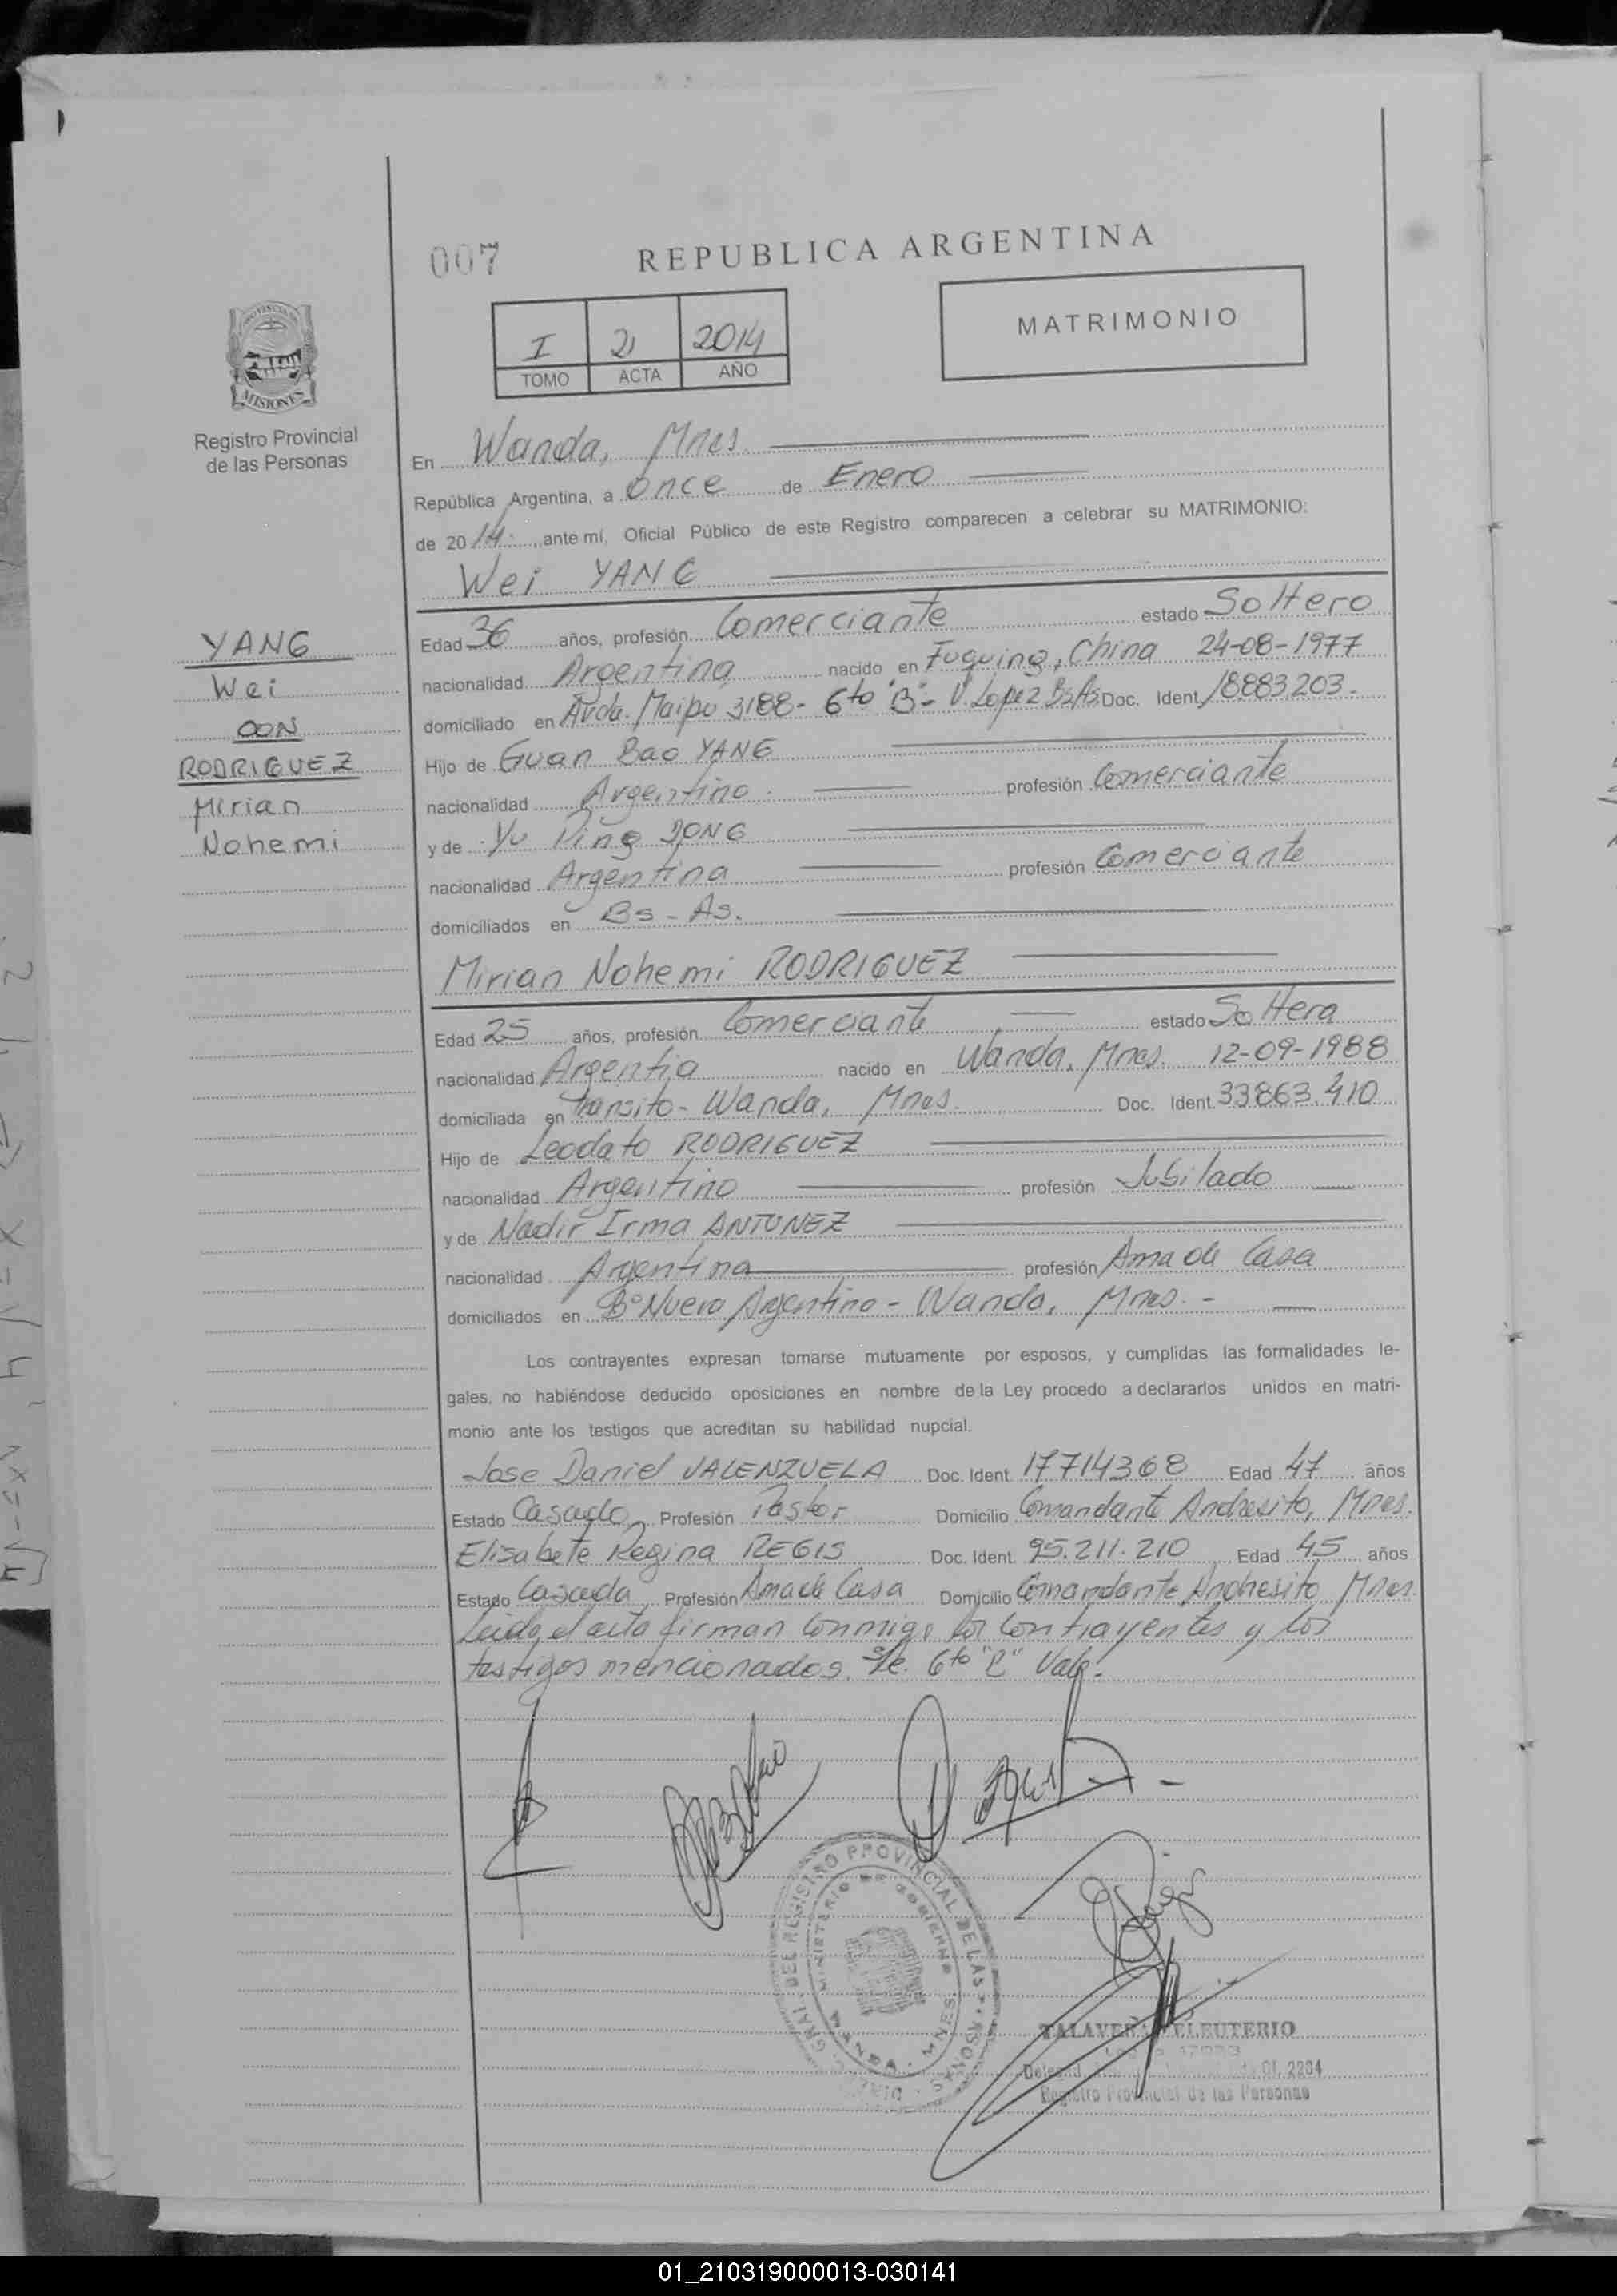 007
REPUBLICA ARGENTINA
I 2 2014
TOMO ACTA AÑO
MATRIMONIO
PROVINCIA DE
MISIONES
Registro Provincial
de las Personas
En Wanda, Mnes.
República Argentina, a Once de Enero
de 2014, ante mí, Oficial Público de este Registro comparecen a celebrar su MATRIMONIO:
Wei YANG
YANG
Wei
CON
RODRIGUEZ
Mirian
Nohemi
Edad 36 años, profesión Comerciante estado Soltero
nacionalidad Argentina nacido en Fuquing, China 24-08-1977
domiciliado en Avda. Maipu 3188- 6to "B"- V. Lopez Bs As Doc. Ident. 18883203-
Hijo de Guan Bao YANG
nacionalidad Argentino profesión Comerciante
y de Yu Ping DONG
nacionalidad Argentina profesión Comerciante
domiciliados en Bs-As.
Mirian Nohemi RODRIGUEZ
Edad 25 años, profesión Comerciante estado Soltera
nacionalidad Argentia nacido en Wanda, Mnes. 12-09-1988
domiciliada en Transito- Wanda, Mnes. Doc. Ident. 33863.410
Hijo de Leodato RODRIGUEZ
nacionalidad Argentino profesión Jubilado
y de Nadir Irma ANTUNEZ
nacionalidad Argentina profesión Ama de Casa
domiciliados en B° Nueva Argentina - Wanda, Mnes.-
Los contrayentes expresan tomarse mutuamente por esposos, y cumplidas las formalidades le-
gales, no habiéndose deducido oposiciones en nombre de la Ley procedo a declararlos unidos en matri-
monio ante los testigos que acreditan su habilidad nupcial.
Jose Daniel VALENZUELA Doc. Ident. 17714368 Edad 47 años
Estado Casado, Profesión Pastor Domicilio Comandante Andresito, Mnes.
Elisabete Regina REGIS Doc. Ident. 95.211.210 Edad 45 años
Estado Casada, Profesión Ama de Casa Domicilio Comandante Andresito, Mnes.
Leida el acta firman conmigo los contrayentes y los
testigos mencionados. 6to Vale.
GRAL. DEL REGISTRO PROVINCIAL DE LAS PERSONAS
MINISTERIO DE GOBIERNO
WANDA MNES.
TALAVERA ELEUTERIO
2284
Registro Provincial de las Personas
01_210319000013-030141